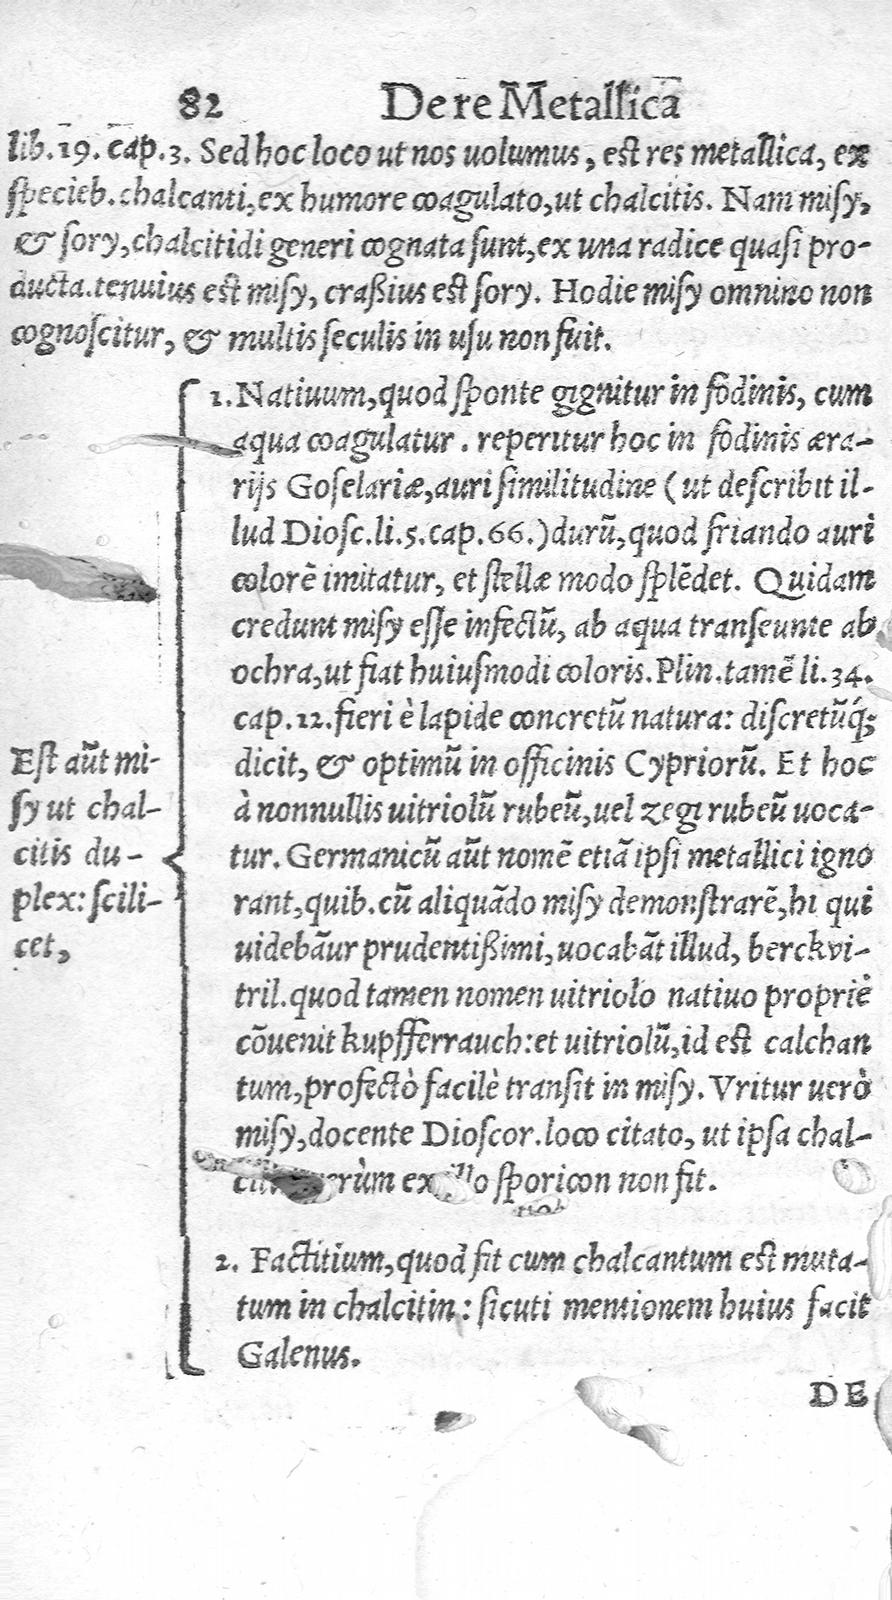 82 De re Metallica
lib.19. cap.3. Sed hoc loco ut nos uolumus, est res metallica, ex
specieb. chalcanti, ex humore coagulato, ut chalcitis. Nam misy,
& sory, chalcitidi generi cognata sunt, ex una radice quasi pro-
ducta. tenuius est misy, craßius est sory. Hodie misy omnino non
cognoscitur, & multis seculis in usu non fuit.
Est aūt mi-
sy ut chal-
citis du-
plex: scili-
cet,
1. Natiuum, quod sponte gignitur in fodinis, cum
aqua coagulatur. reperitur hoc in fodinis æra-
rijs Goselariæ, auri similitudine (ut describit il-
lud Diosc. li. 5. cap. 66.) durū, quod friando auri
colorē imitatur, et stellæ modo splēdet. Quidam
credunt misy esse infectū, ab aqua transeunte ab
ochra, ut fiat huiusmodi coloris. Plin. tamē li. 34.
cap. 12. fieri è lapide concretū natura: discretūq́;
dicit, & optimū in officinis Cypriorū. Et hoc
à nonnullis uitriolū rubeū, uel zegi rubeū uoca-
tur. Germanicū aūt nomē etiā ipsi metallici igno
rant, quib. cū aliquādo misy demonstrarē, hi qui
uidebāur prudentißimi, uocabāt illud, berckvi-
tril. quod tamen nomen uitriolo natiuo propriè
cōuenit kupfferrauch: et uitriolū, id est calchan
tum, profectò facilè transit in misy. Vritur uerò
misy, docente Dioscor. loco citato, ut ipsa chal-
uerùm ex illo sporicon non fit.
2. Factitium, quod fit cum chalcantum est muta-
tum in chalcitin: sicuti mentionem huius facit
Galenus.
DE